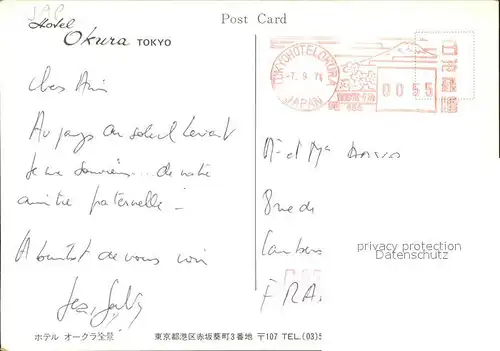 Hotel
Okura TOKYO
Post Card
TOKYO HOTEL OKURA
-7. 9. 7
JAPAN
0055
Cher Ami
Au pays du soleil levant
je me souviens... de notre
amitié fraternelle
A bientôt de vous voir
M. et Mme
Rue de
privacy protection
Datenschutz
FRA
ホテル オークラ全景
東京都港区赤坂葵町3番地 〒107 TEL.(03)5